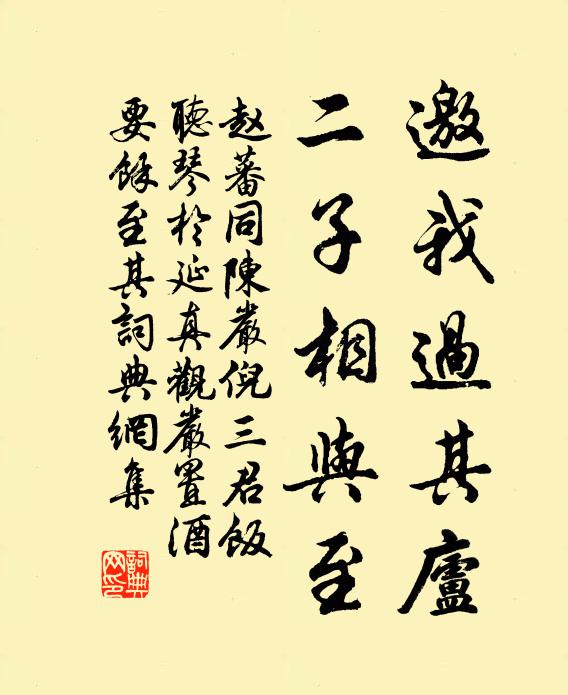 邀我過其廬
二子相與至
赵蕃同陳嚴倪三君飯
聽琴於延真觀嚴置酒
要餘至其詞典網集
詞典網印